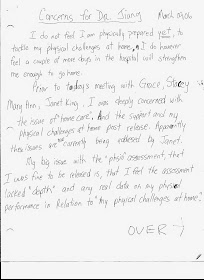 Concerns for Dr. Jiang March 09/06
I do not feel I am physically prepared yet, to
tackle my physical challenges at home, I do however
feel a couple of more days in the hospital will strengthen
me enough to go home.
Prior to today's meeting with Grace, Stacey
Mary Ann, Janet King, I was deeply concerned with
the issue of home care, And the support and my
physical challenges at home post release. Apparently
these issues are currently being adressed by Janet.
My big issue with the "physio" assessment, that
I was fine to be released is, that I felt the assessment
lacked "depth" and any real data on my physical
performance in Relation to "my physical challenges at home."
OVER